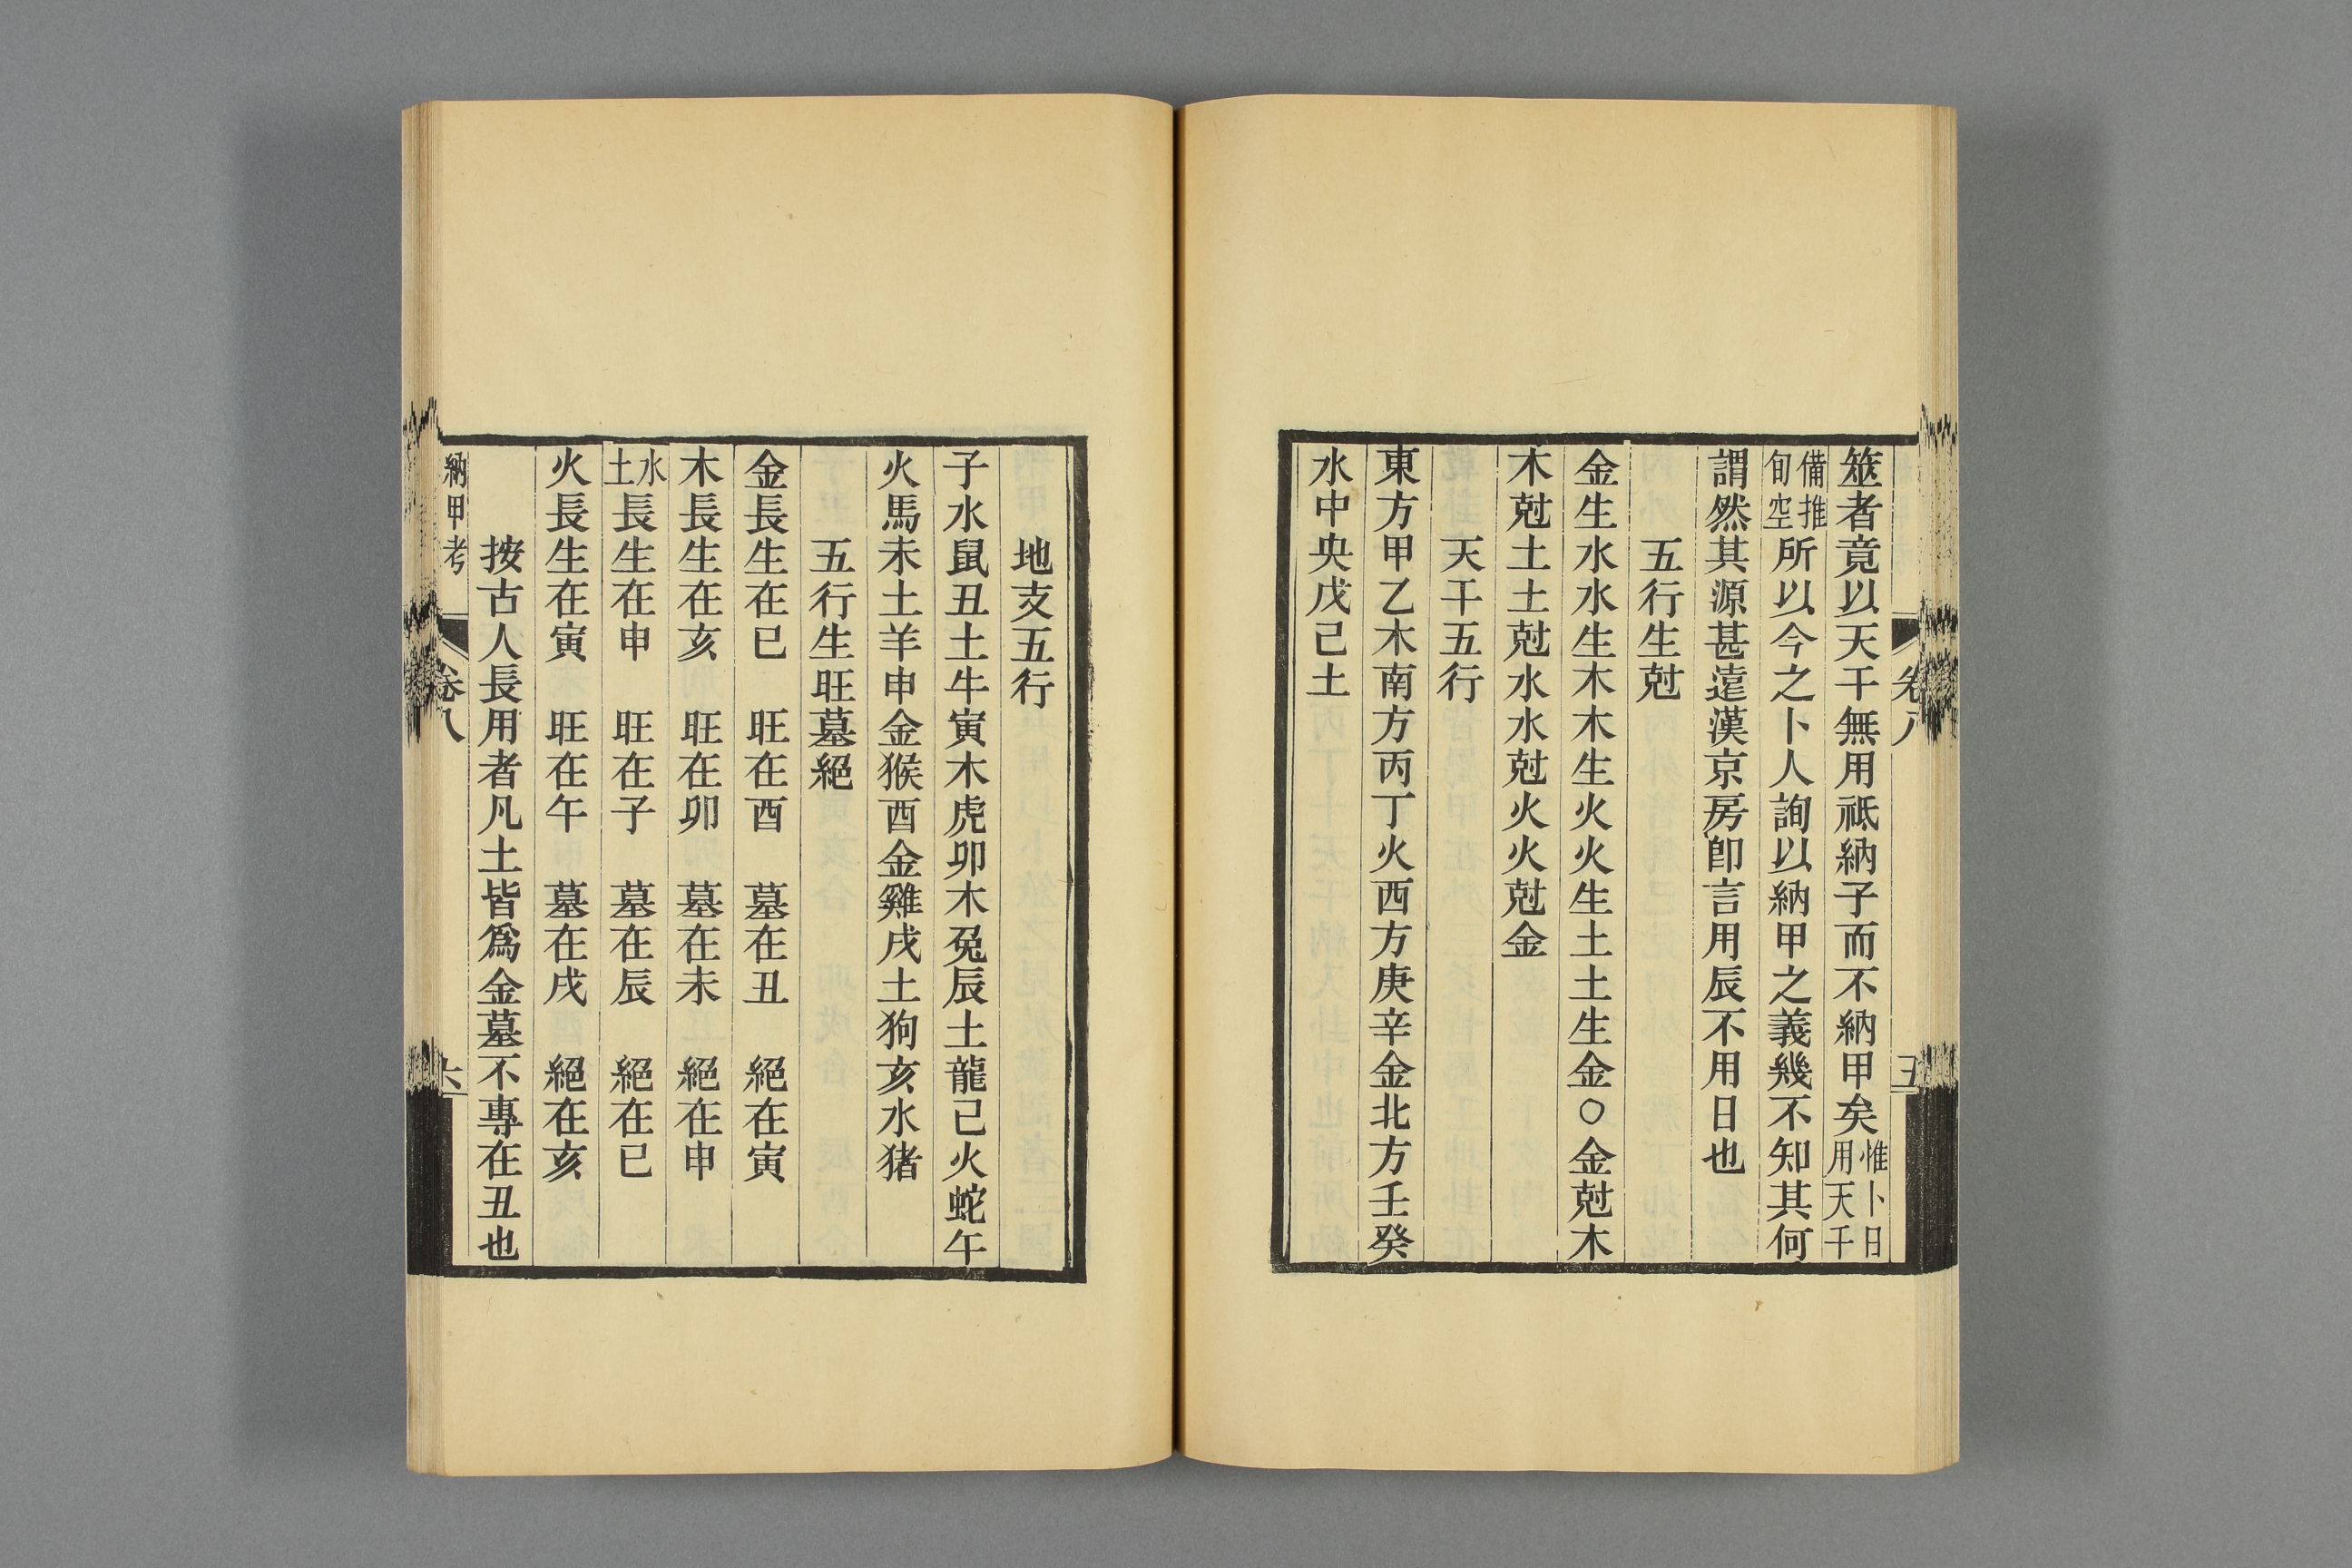 筮者竟以天干無用祇納子而不納甲矣惟卜日用天千
備推旬空所以今之卜人詢以納甲之義幾不知其何
謂然其源甚遠漢京房卽言用辰不用日也
五行生尅
金生水水生木木生火火生土土生金○金尅木
木尅土土尅水水尅火火尅金
天干五行
東方甲乙木南方丙丁火西方庚辛金北方壬癸
水中央戊己土
卷八
五
地支五行
子水鼠丑土牛寅木虎卯木兔辰土龍巳火蛇午
火馬未土羊申金猴酉金雞戌土狗亥水猪
五行生旺墓絕
金長生在巳 旺在酉 墓在丑 絕在寅
木長生在亥 旺在卯 墓在未 絕在申
水土長生在申 旺在子 墓在辰 絕在巳
火長生在寅 旺在午 墓在戌 絕在亥
按古人長用者凡土皆爲金墓不專在丑也
納甲考
卷八
六